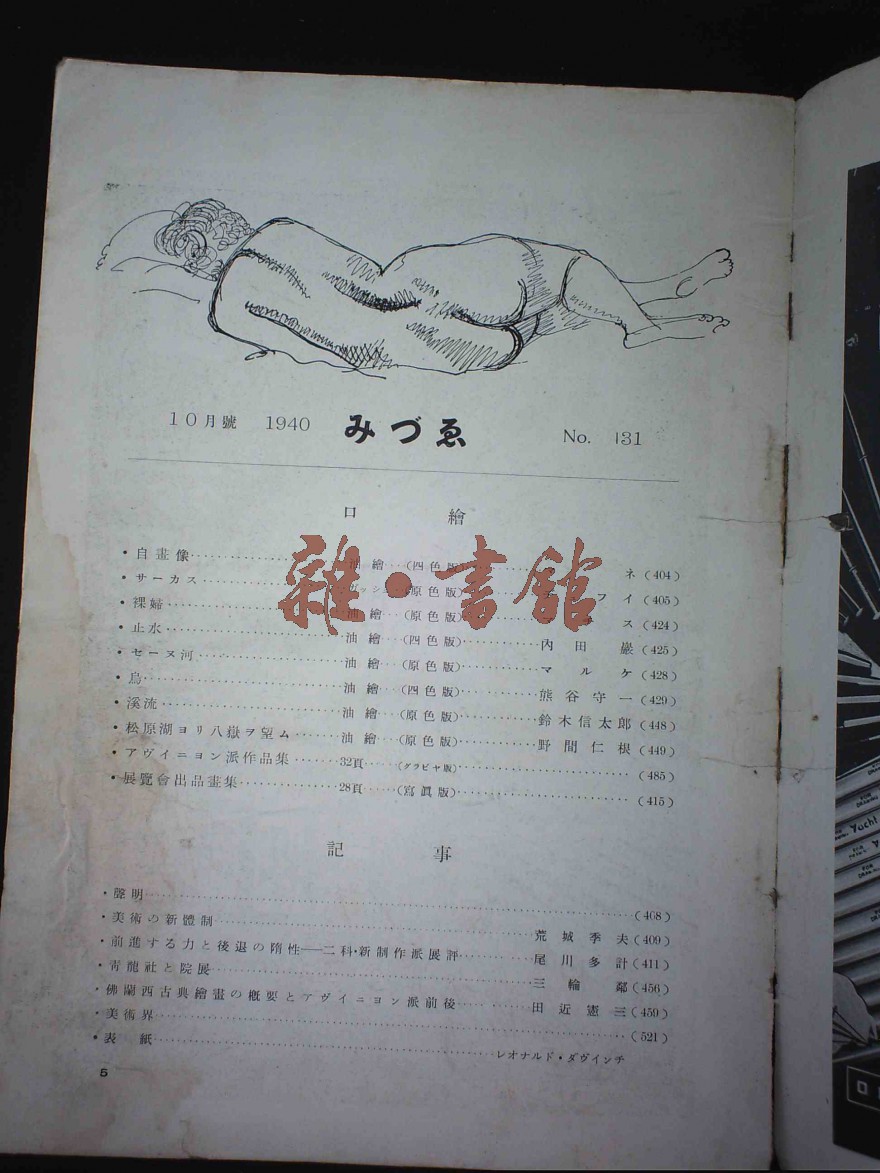 10月號 1940 みづゑ No. 431
口繪
・自畫像 油繪 (四色版) ネ (404)
・サーカス ガッシュ (原色版) フイ (405)
・裸婦 油繪 (原色版) ス (424)
・止水 油繪 (四色版) 內田巖 (425)
・セーヌ河 油繪 (原色版) マルケ (428)
・鳥 油繪 (四色版) 熊谷守一 (429)
・溪流 油繪 (原色版) 鈴木信太郎 (448)
・松原湖ヨリ八嶽ヲ望ム 油繪 (原色版) 野間仁根 (449)
・アヴイニヨン派作品集 32頁 (グラビヤ版) (485)
・展覽會出品畫集 28頁 (寫眞版) (415)
記事
・聲明 (408)
・美術の新體制 荒城季夫 (409)
・前進する力と後退の隋性──二科・新制作派展評 尾川多計 (411)
・靑龍社と院展 三輪鄰 (456)
・佛蘭西古典繪畫の槪要とアヴイニヨン派前後 田近憲三 (459)
・美術界 (521)
・表紙 レオナルド・ダヴインチ
5
雜・書館
Yacht